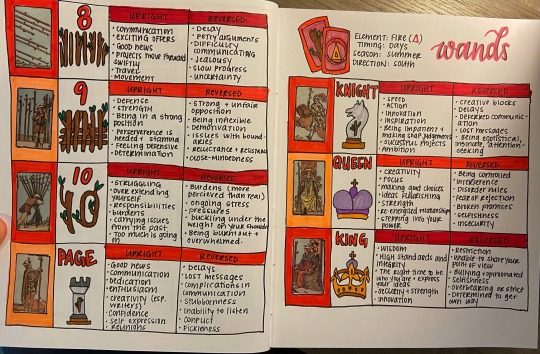 8
UPRIGHT
• Communication
• exciting offers
• Good news
• Projects move forward
swiftly
• Travel
• Movement
REVERSED
• Delay
• Petty arguments
• Difficulty
communicating
• Jealousy
• Slow Progress
• uncertainty
9
UPRIGHT
• Defense
• strength
• Being in a strong
position
• Perserverence is
needed + stamina
• Feeling Defensive
• Determination
REVERSED
• strong + unfair
opposition
• Being inflexible
• Demotivation
• issues with bound-
aries
• Reluctance + Resistance
• close-mindedness
10
UPRIGHT
• Struggling
• over extending
yourself
• Responsibilities
• burdens
• Carrying issues
from the past
• Too much is going
on
REVERSED
• Burdens (more
perceived than real)
• ongoing stress
• pressures
• buckling under the
weight on your shoulders
• Being burnt out +
overwhelmed.
PAGE
UPRIGHT
• Good news
• communication
• Dedication
• Enthusiasm
• creativity (esp.
writers)
• Confidence
• self expression
• Reunions
REVERSED
• Delays
• Lost messages
• Complications in
communication
• Stubbornness
• Inability to listen
• conflict
• Pickiness
ELEMENT: FIRE (△)
TIMING: DAYS
SEASON: SUMMER
DIRECTION: SOUTH
wands
KNIGHT
UPRIGHT
• speed
• Action
• Innovation
• INSPIRATION
• Being impatient +
making snap judgments
• successful projects
• Ambition
REVERSED
• creative blocks
• Delays
• Deferred communic-
ation
• Lost messages
• Being egotistical,
attention-
seeking
QUEEN
UPRIGHT
• creativity
• Focus
• making good choices
• ideas flourishing
• Strength
• re-energized relationships
• stepping into your
power
REVERSED
• Being controlled
• interference
• Disorder rules
• fear of rejection
• Broken promises
• selfishness
• insecurity
KING
UPRIGHT
• Wisdom
• High standards and
integrity
• The right time to be
who you are + express
your ideas
• security + strength
• innovation
REVERSED
• Restriction
• unable to share your
point of view
• Bullying + opinionated
• selfishness
• overbearing or strict
• Determined to get
own way